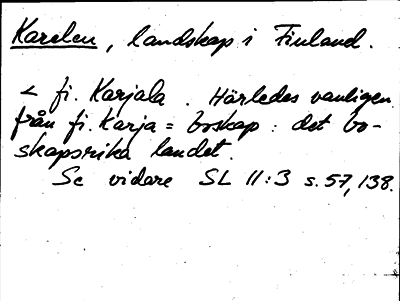 Karelen, landskap i Finland.
< fi. Karjala. Härledes vanligen
från fi. Karja = boskap: det bo-
skapsrika landet.
Se vidare SL 11:3 s. 57, 138.